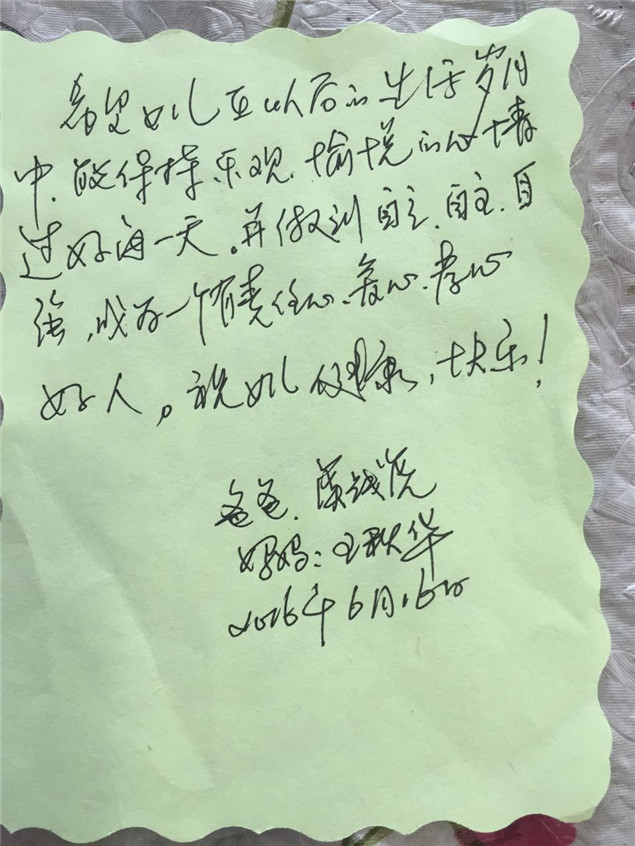 希望女儿在以后的生活岁月
中.能保持乐观.愉悦的心情
过好每一天。并做到自立.自主.自
强,成为一个有责任心.爱心.孝心
好人。祝女儿健康,快乐!
爸爸.
妈妈:王秋华
2016年6月16日